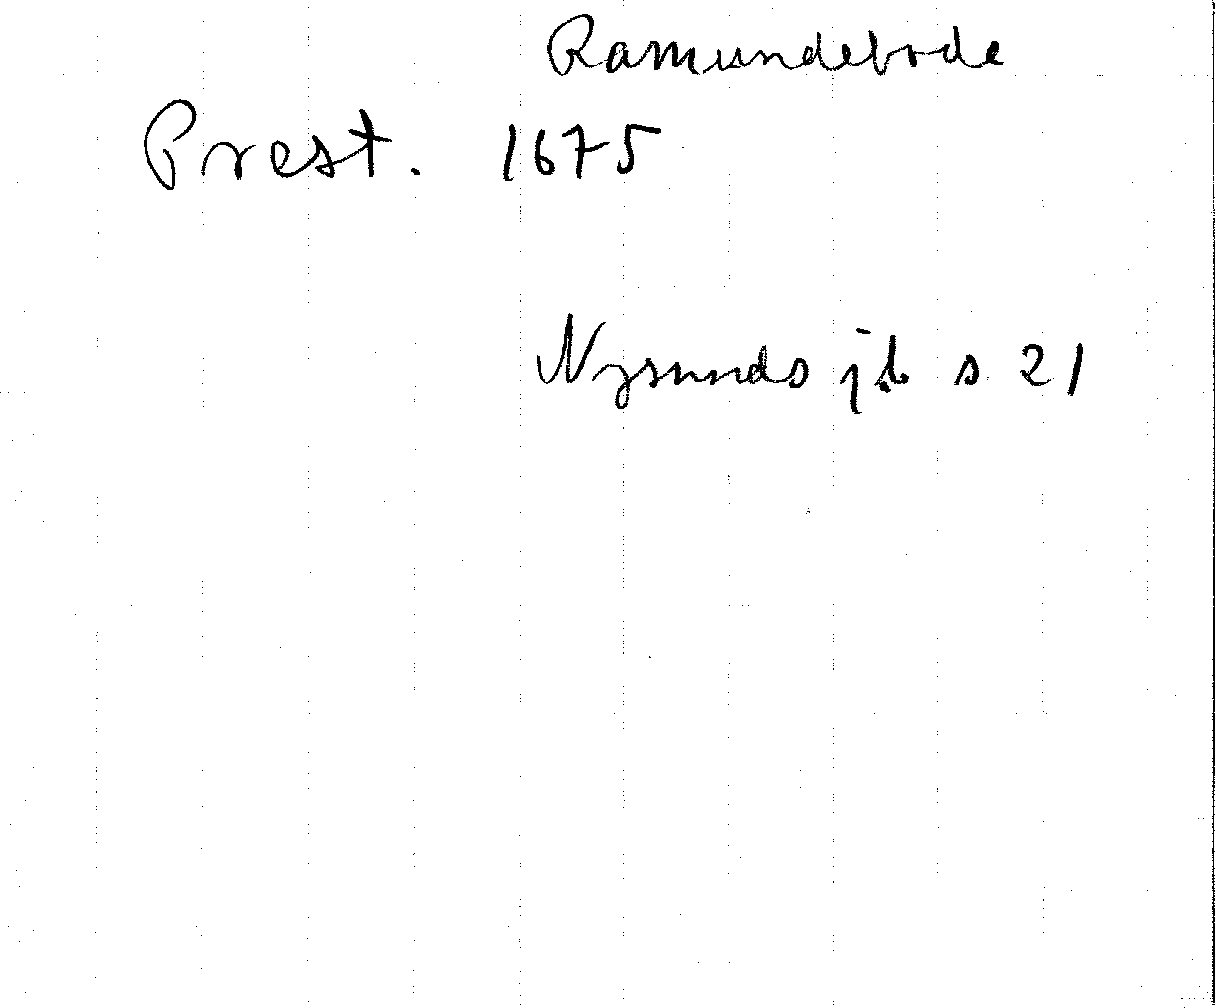 Ramundebode
Prest. 1675
Nysunds jb s 21